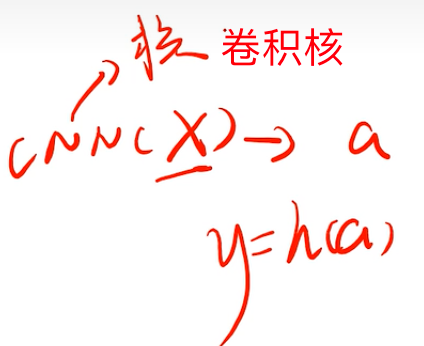 核 卷积核
CNN(X) → a
y=h(a)